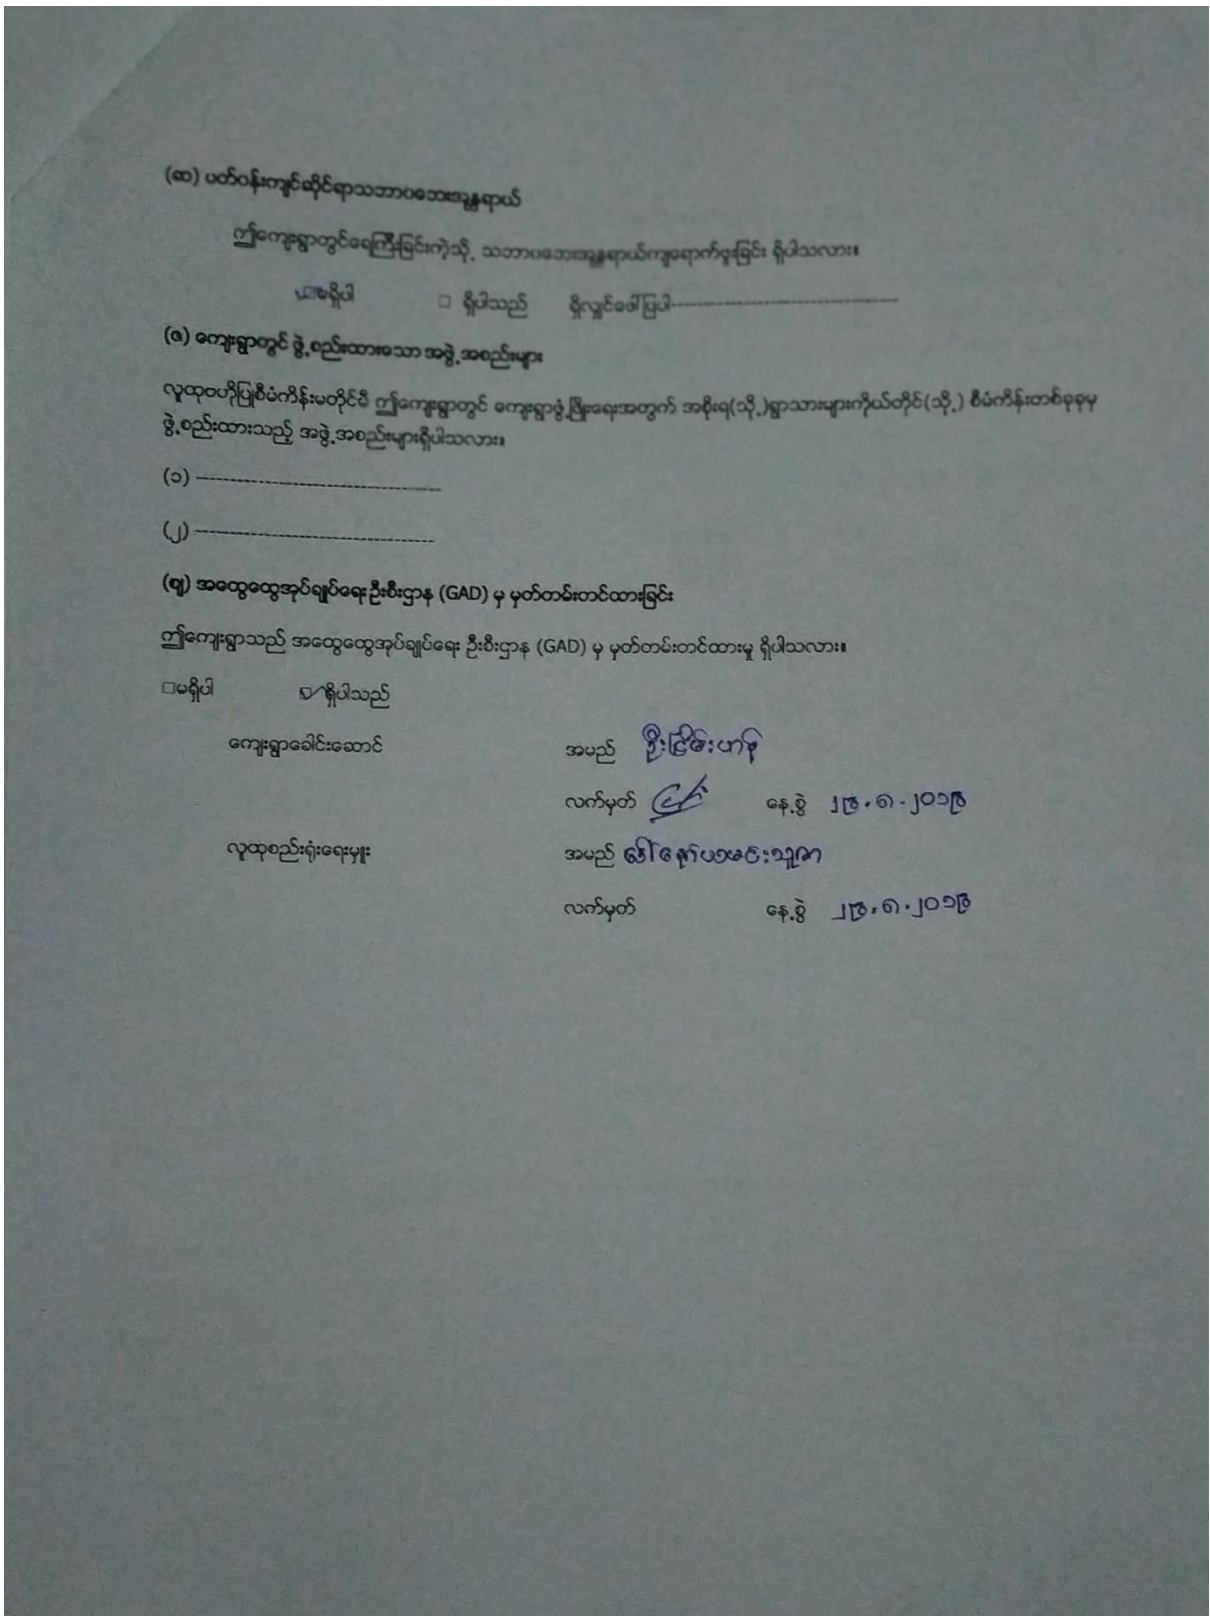 (ဆ) ပတ်ဝန်းကျင်ဆိုင်ရာသဘာဝဘေးအန္တရာယ်
ဤကျေးရွာတွင်ရေကြီးခြင်းကဲ့သို့ သဘာဝဘေးအန္တရာယ်ကျရောက်ဖူးခြင်း ရှိပါသလား။
☑မရှိပါ □ ရှိပါသည် ရှိလျှင်ဖေါ်ပြပါ---------------------------------
(ဇ) ကျေးရွာတွင် ဖွဲ့စည်းထားသော အဖွဲ့အစည်းများ
လူထုဗဟိုပြုစီမံကိန်းမတိုင်မီ ဤကျေးရွာတွင် ကျေးရွာဖွံ့ဖြိုးရေးအတွက် အစိုးရ(သို့)ရွာသားများကိုယ်တိုင်(သို့) စီမံကိန်းတစ်ခုခုမှ
ဖွဲ့စည်းထားသည့် အဖွဲ့အစည်းများရှိပါသလား။
(၁) -----------------------------------
(၂) -----------------------------------
(ဈ) အထွေထွေအုပ်ချုပ်ရေးဦးစီးဌာန (GAD) မှ မှတ်တမ်းတင်ထားခြင်း
ဤကျေးရွာသည် အထွေထွေအုပ်ချုပ်ရေး ဦးစီးဌာန (GAD) မှ မှတ်တမ်းတင်ထားမှု ရှိပါသလား။
□မရှိပါ ☑ရှိပါသည်
ကျေးရွာခေါင်းဆောင် အမည် ဦးငြိမ်းဟန်
လက်မှတ် နေ့စွဲ ၂၉.၈.၂၀၁၉
လူထုစည်းရုံးရေးမှူး အမည် ဒေါ်နော်ယမင်းသူဇာ
လက်မှတ် နေ့စွဲ ၂၉.၈.၂၀၁၉